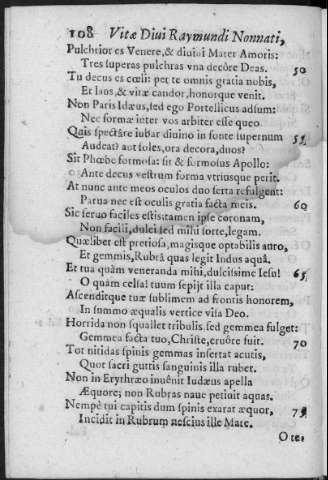 108 Vitæ Diui Raymundi Nonnati,
Pulchrior es Venere, & diuini Mater Amoris:
Tres superas pulchras vna decôre Deas. 50
Tu decus es cœli: per te omnis gratia nobis,
Et laus, & vitæ candor, honorque venit.
Non Paris Idæus, sed ego Portellicus adsum:
Nec formæ inter vos arbiter esse queo
Quis spectâre iubar diuino in fonte supernum 55
Audeat? aut soles, ora decora, duos?
Sit Phœbe formosa: sit & formosus Apollo:
Ante decus vestrum forma vtriusque perit.
At nunc ante meos oculos duo serta refulgent:
Parua nec est oculis gratia facta meis. 60
Sic seruo faciles estis, tamen ipse coronam,
Non facili, dulci sed mihi sorte, legam.
Quælibet est pretiosa, magisque optabilis auro,
Et gemmis, Rubrâ quas legit Indus aquâ.
Et tua quàm veneranda mihi, dulcissime Iesu! 65
O quàm celsa! tuum sepijt illa caput:
Ascenditque tuæ sublimem ad frontis honorem,
In summo æqualis vertice visa Deo.
Horrida non squallet tribulis, sed gemmea fulget:
Gemmea facta tuo, Christe, cruôre fuit. 70
Tot nitidas spinis gemmas insertat acutis,
Quot sacri guttis sanguinis illa rubet.
Non in Erythræo inuênit Iudæus apella
Æquore; non Rubras naue petiuit aquas.
Nempè tui capitis dum spinis exarat æquor, 75
Incidit in Rubrum nescius ille Mare.
O te: